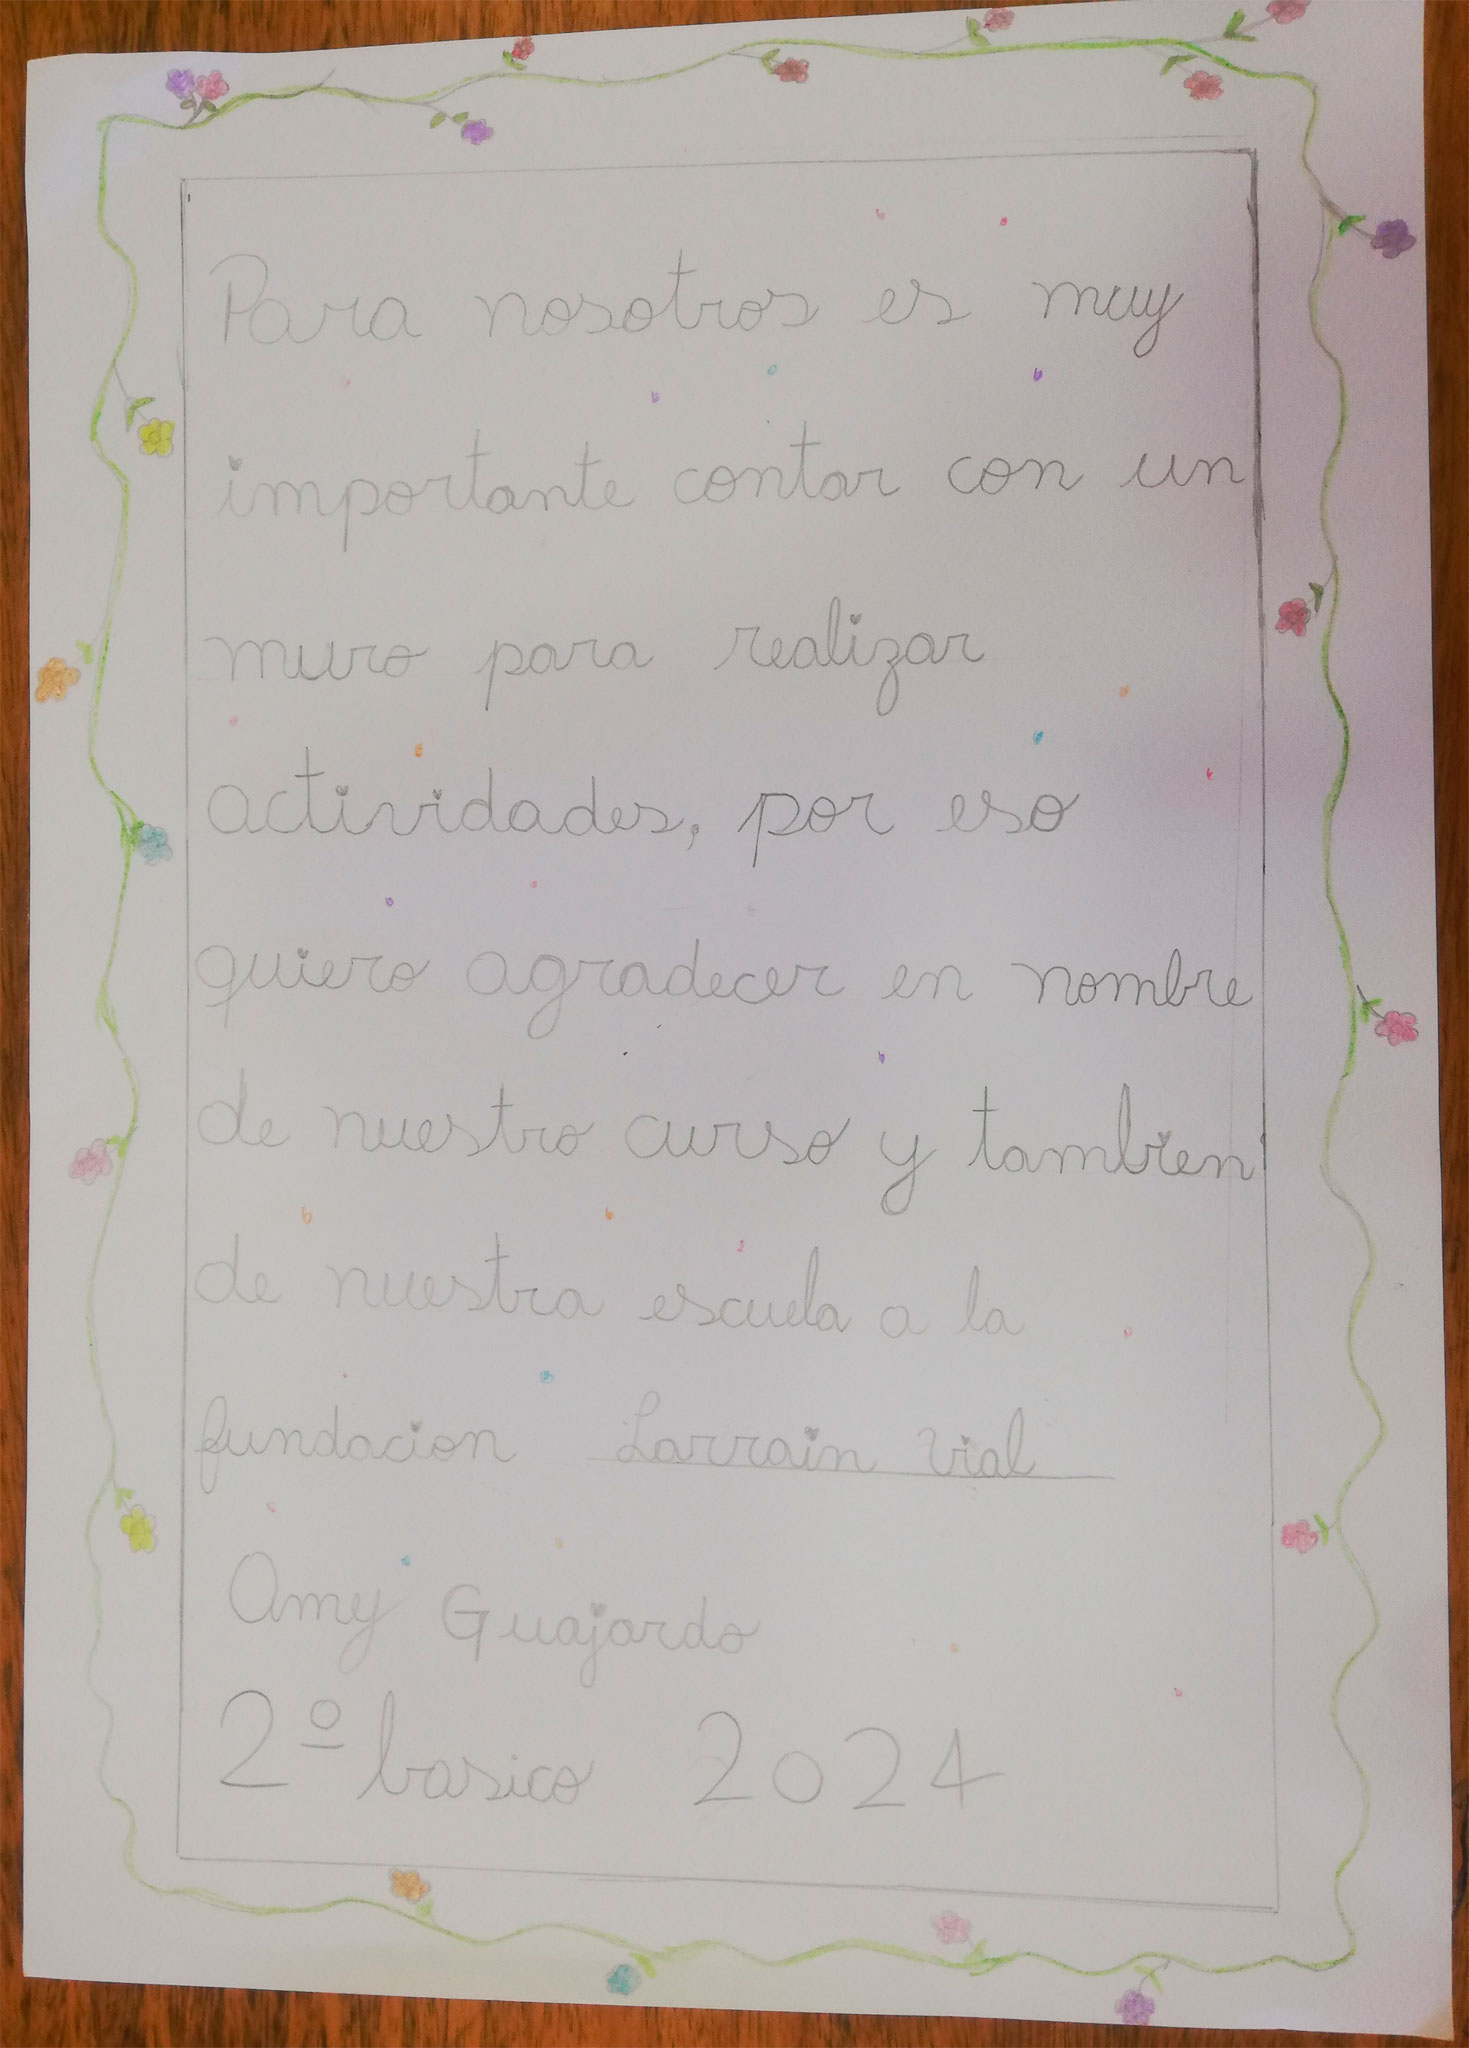 Para nosotros es muy
importante contar con un
muro para realizar
actividades, por eso
quiero agradecer en nombre
de nuestro curso y tambien
de nuestra escuela a la
fundacion Larrain Vial
Amy Guajardo
2º basico 2024